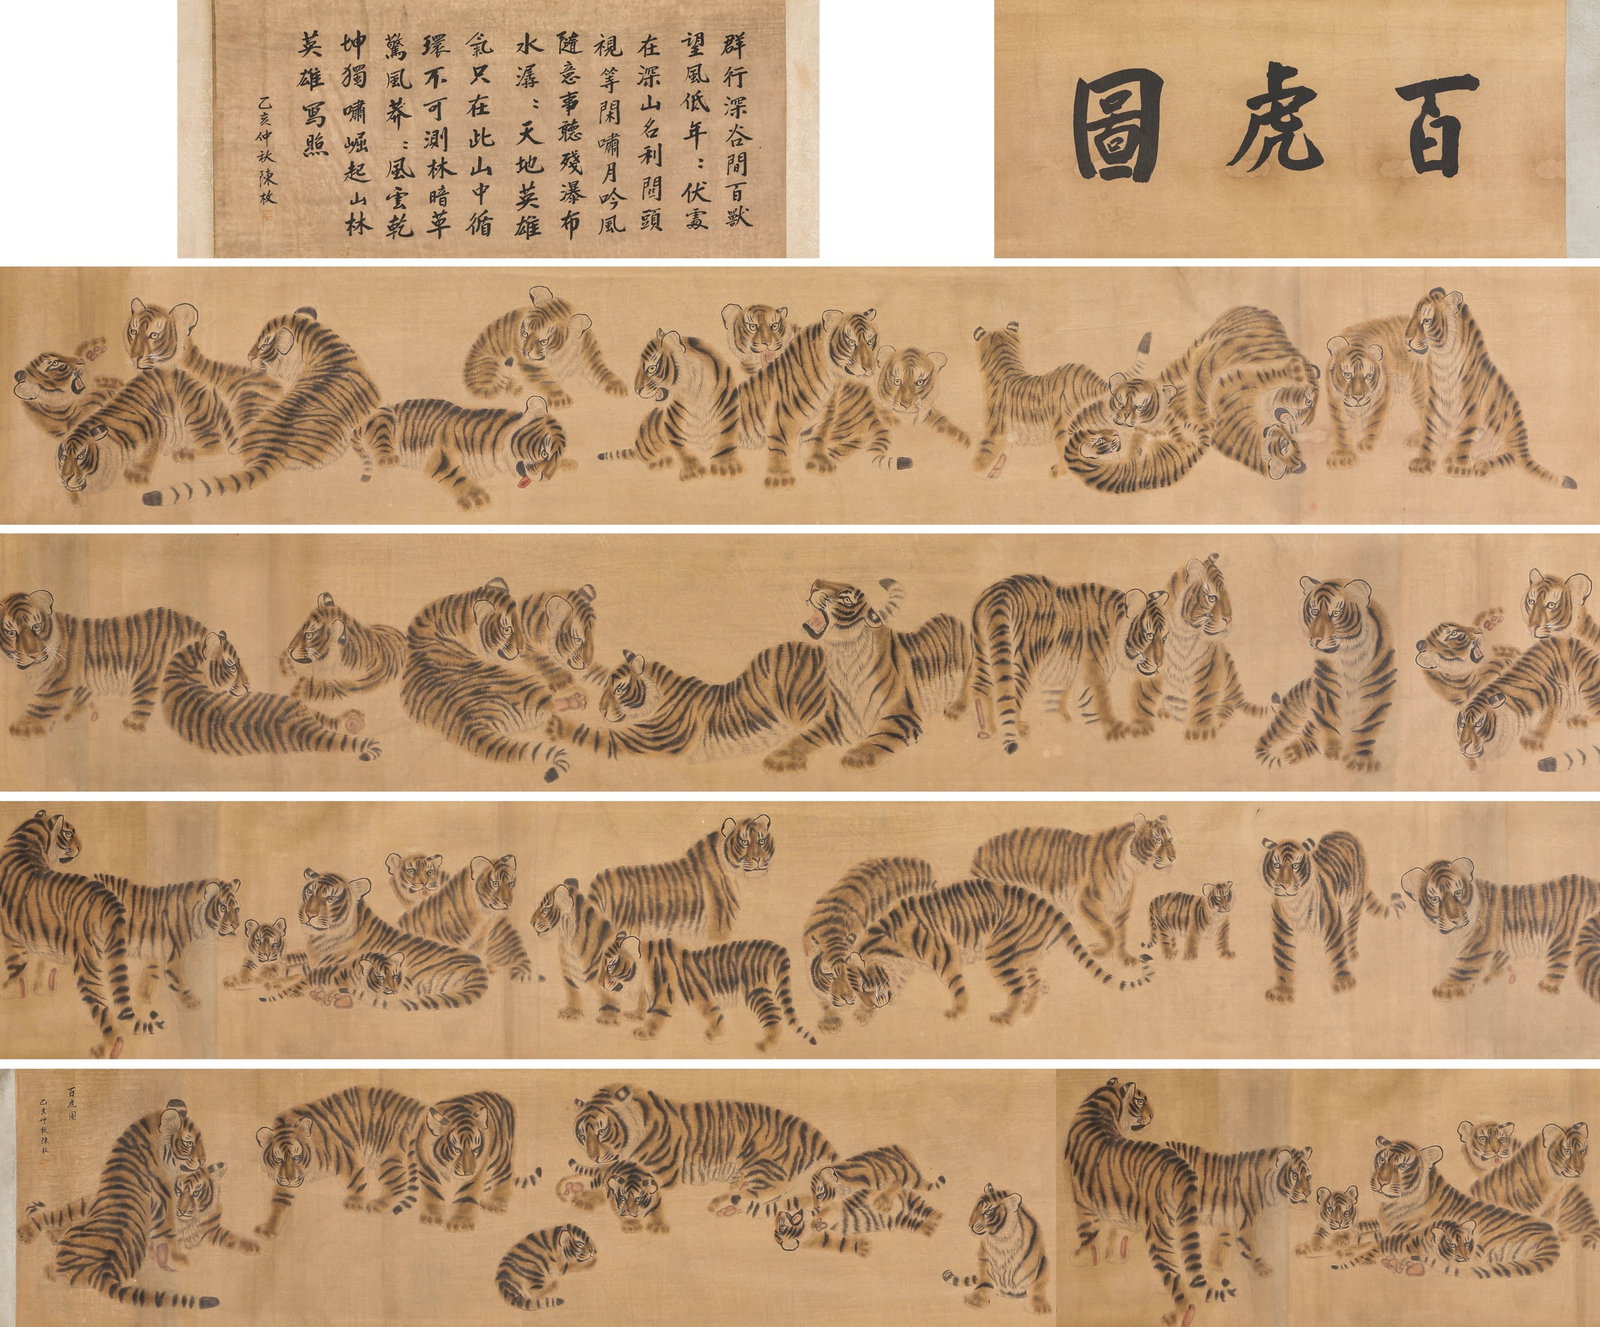 百虎圖
群行深谷間百獸
望風低年〻伏處
在深山名利關頭
視等閑嘯月吟風
隨意事聽殘瀑布
水潺〻天地英雄
氣只在此山中循
環不可測林暗草
驚風莽〻風雲乾
坤獨嘯崛起山林
英雄寫照
乙亥仲秋陳枚
百虎圖
乙亥仲秋陳枚